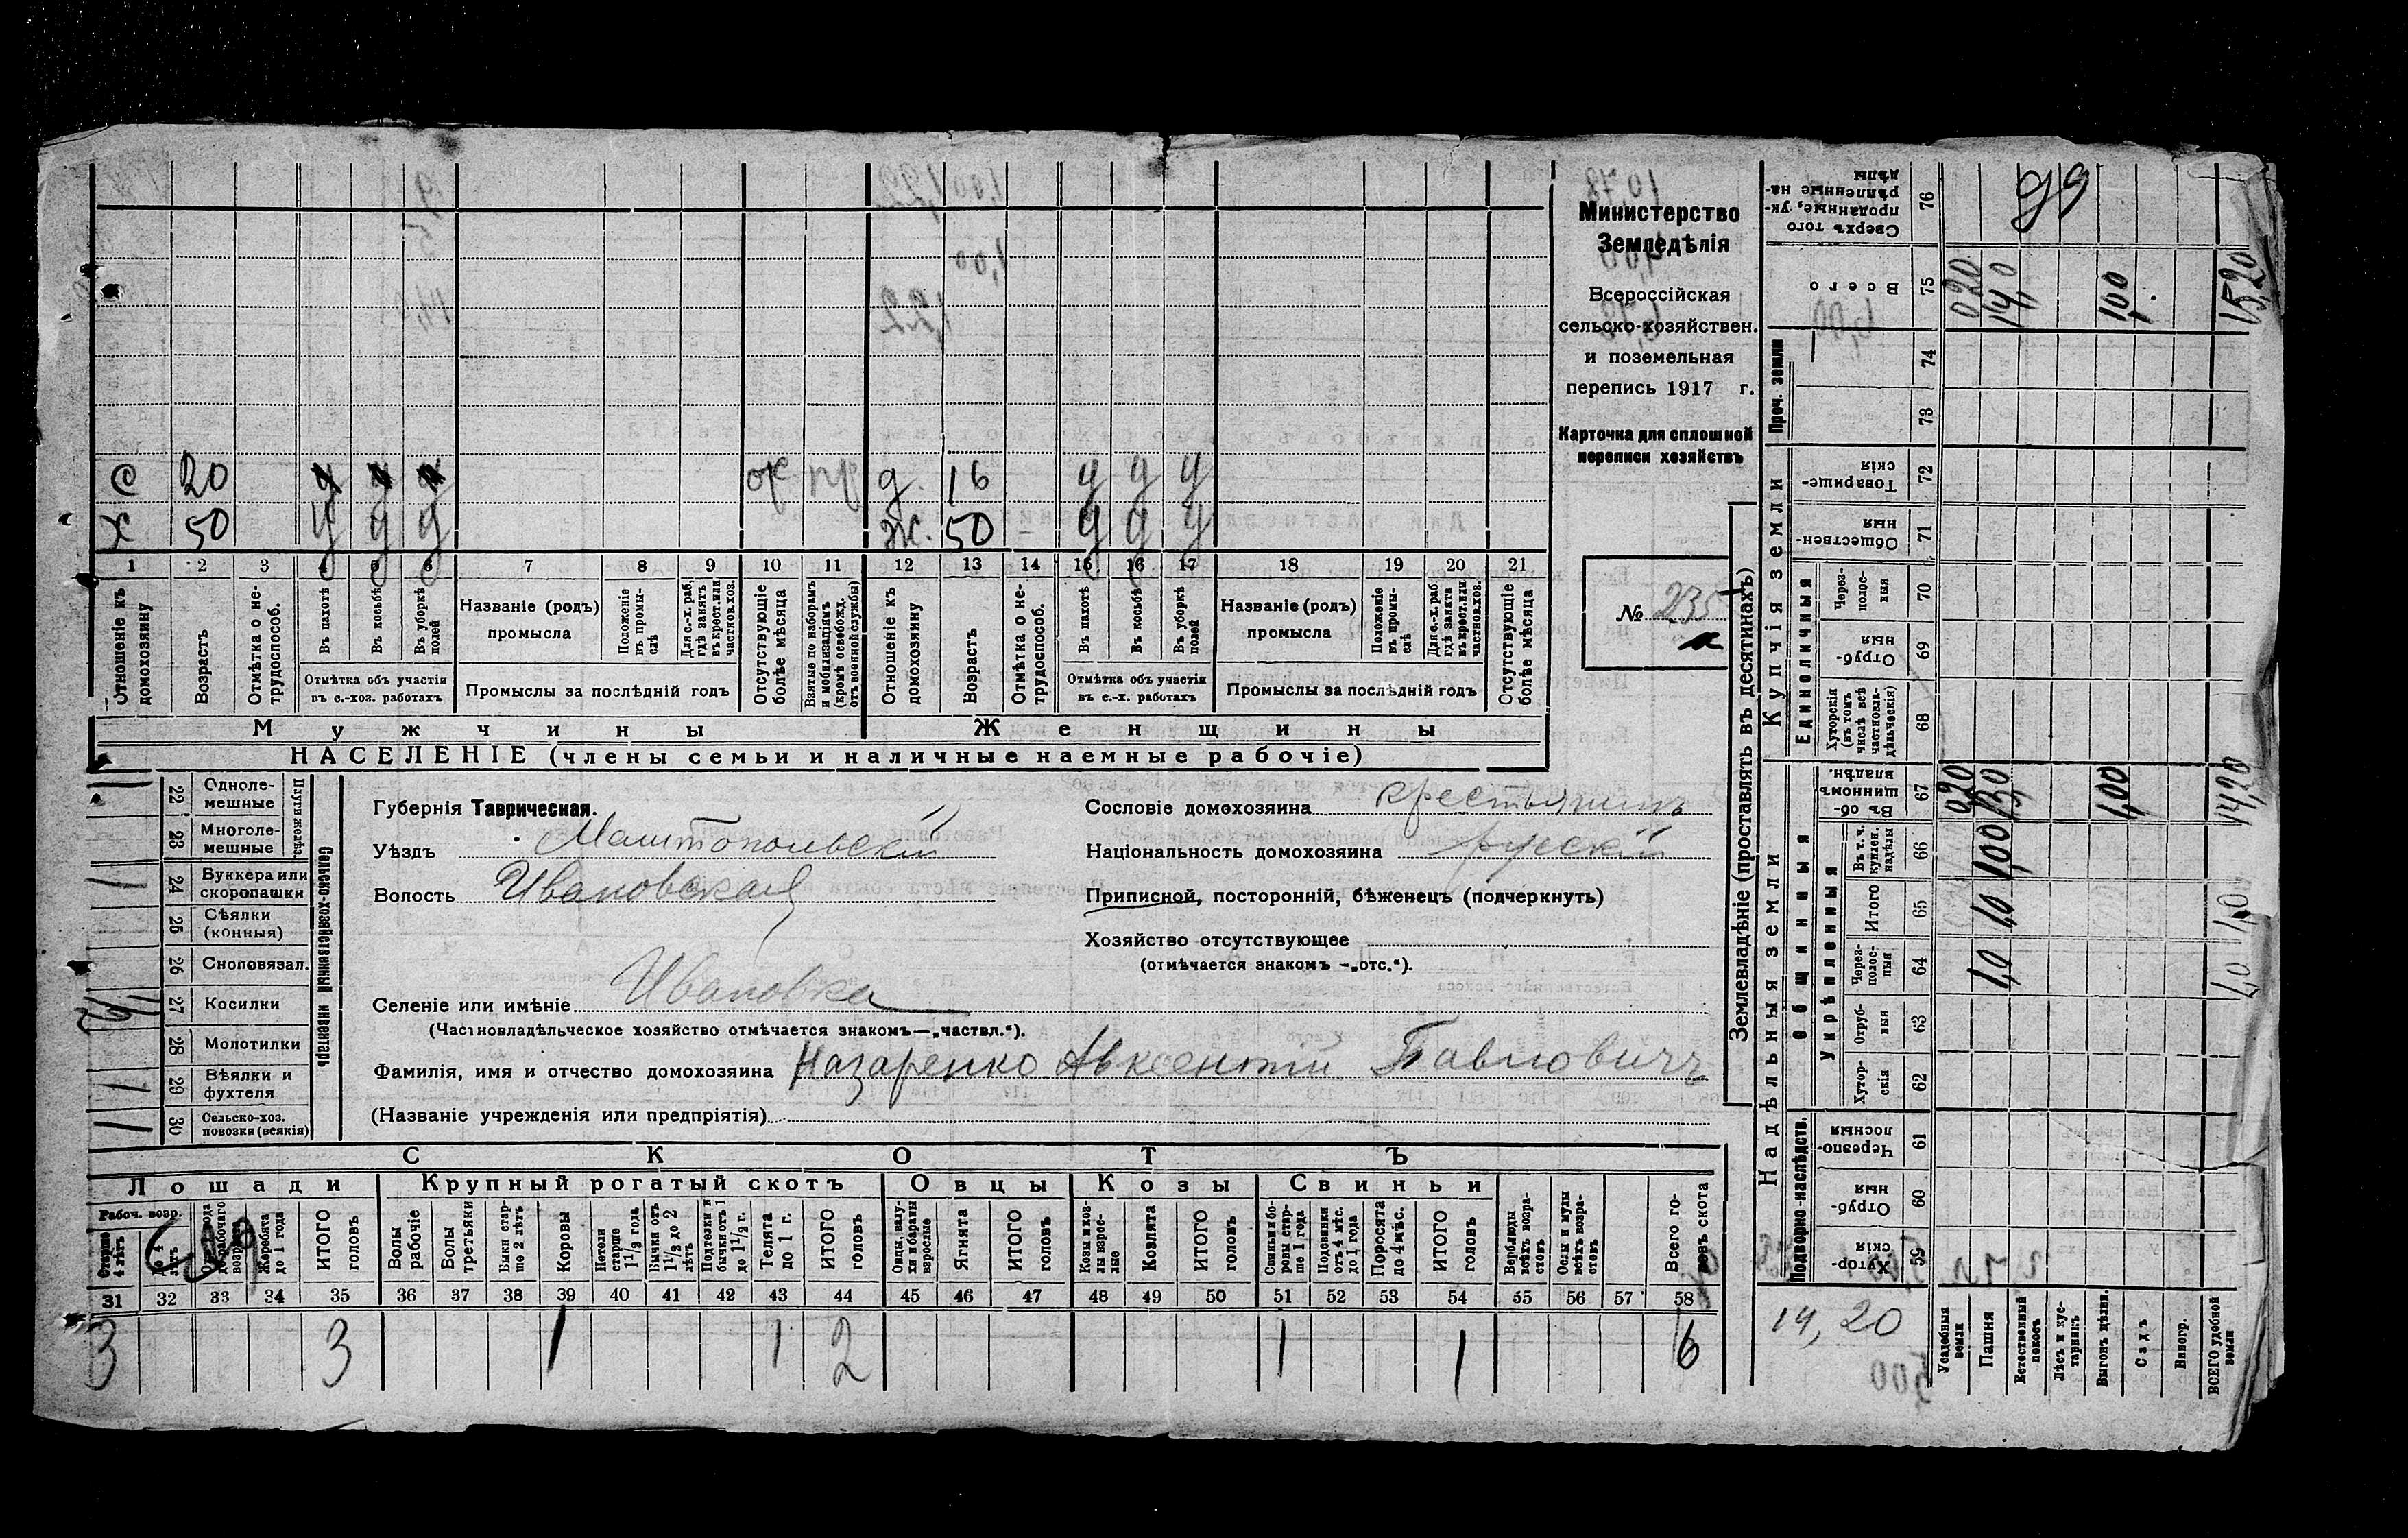 Министерство
Земледѣлія
Всероссійская
сельско-хозяйствен.
и поземельная
перепись 1917 г.
Карточка для сплошной
переписи хозяйствъ
№ 235
с 20 у у у д. 16 у у у
х 50 у у у ж. 50 - у у у
1 2 3 4 5 6 7 8 9 10 11 12 13 14 15 16 17 18 19 20 21
Отношеніе къ домохозяину
Возрастъ
Отмѣтка о не-трудоспособ.
Въ пахотѣ
Въ косьбѣ
Въ уборкѣ полей
Отмѣтка объ участіи
въ с.-хоз. работахъ
Названіе (родъ)
промысла
Положеніе въ промы-слѣ
Для с.-х. раб., гдѣ занятъ въ крест. или частнов. хоз.
Промыслы за послѣдній годъ
Отсутствующіе болѣе мѣсяца
Взятые по наборамъ и мобилизаціямъ (кромѣ освобожд. отъ военной службы)
Отношеніе къ домохозяину
Возрастъ
Отмѣтка о не-трудоспособ.
Въ пахотѣ
Въ косьбѣ
Въ уборкѣ полей
Отмѣтка объ участіи
въ с.-х. работахъ
Названіе (родъ)
промысла
Положеніе въ промы-слѣ
Для с.-х. раб. гдѣ занята въ крест. или частнов. хоз.
Промыслы за послѣдній годъ
Отсутствующіе болѣе мѣсяца
Мужчины Женщины
НАСЕЛЕНІЕ (члены семьи и наличные наемные рабочіе)
Сельско-хозяйственный инвентарь
Плуги желѣз.
22 Одноле-мешные 1
23 Многоле-мешные
24 Буккера или скоропашки 1
25 Сѣялки (конныя)
26 Сноповязал.
27 Косилки 1/2
28 Молотилки
29 Вѣялки и фухтеля 1
30 Сельско-хоз. повозки (всякія) 1
Губернія Таврическая.
Уѣздъ Мелитопольскій
Волость Ивановская
Селеніе или имѣніе Ивановка
(Частновладѣльческое хозяйство отмѣчается знакомъ—„частвл.“).
Фамилія, имя и отчество домохозяина Назаренко Авксентий Павловичъ
(Названіе учрежденія или предпріятія)
Сословіе домохозяина крестьянинъ
Національность домохозяина русскій
Приписной, посторонній, бѣженецъ (подчеркнуть)
Хозяйство отсутствующее
(отмѣчается знакомъ —„отс.“).
СКОТЪ
Лошади Крупный рогатый скотъ Овцы Козы Свиньи
Рабоч. возр.
Старше 4 лѣтъ
До 4 лѣтъ
Жеребята до 1 года
ИТОГО головъ
Волы рабочіе
Волы третьяки
Быки стар-ше 2 лѣтъ
Коровы
Нетели старше 1 1/2 года
Бычки отъ 1 1/2 до 2 лѣтъ
Подтелки и бычки отъ 1 до 1 1/2 г.
Телята до 1 г.
ИТОГО головъ
Овцы, валу-хи и бараны взрослые
Ягнята
ИТОГО головъ
Козы и коз-лы взрос-лые
Козлята
ИТОГО головъ
Свиньи и бо-ровы стар-ше 1 года
Подсвинки отъ 4 мѣс. до 1 года
Поросята до 4 мѣс.
ИТОГО головъ
Верблюды всѣхъ возра-стовъ
Ослы и мулы всѣхъ возра-стовъ
Всего го-ловъ скота
31 32 33 34 35 36 37 38 39 40 41 42 43 44 45 46 47 48 49 50 51 52 53 54 55 56 57 58
3 3 1 1 2 1 1 6
Землевладѣніе (проставлять въ десятинахъ)
Надѣльныя земли
Подворно-наслѣдств.
59 Хутор-скія
60 Отруб-ныя
61 Черезпо-лосныя
Общинныя
Укрѣпленныя
62 Хутор-скія
63 Отруб-ныя
64 Через-полос-ныя 1,0 1,0
65 Итого 1,0 1,0
66 Въ т. ч. куплен. надѣлы 1,00
67 Въ об-щинномъ владѣн. 0,20 13,0 1,00 14,20
Купчія земли
Единоличныя
68 Хуторскія (въ томъ числѣ всѣ частновла-дѣльческія)
69 Отруб-ныя
70 Через-полос-ныя
71 Обществен-ныя
72 Товарище-скія
Проч. земли
73
74
75 Всего 0,20 14,0 1,00 15,20
76 Сверхъ того проданные, ук-рѣпленные на-дѣлы
99
14,20
Усадебныя земли
Пашня
Естественный покосъ
Лѣсъ и кус-тарникъ
Выгонъ цѣлин.
Садъ
Виногр.
ВСЕГО удобной земли